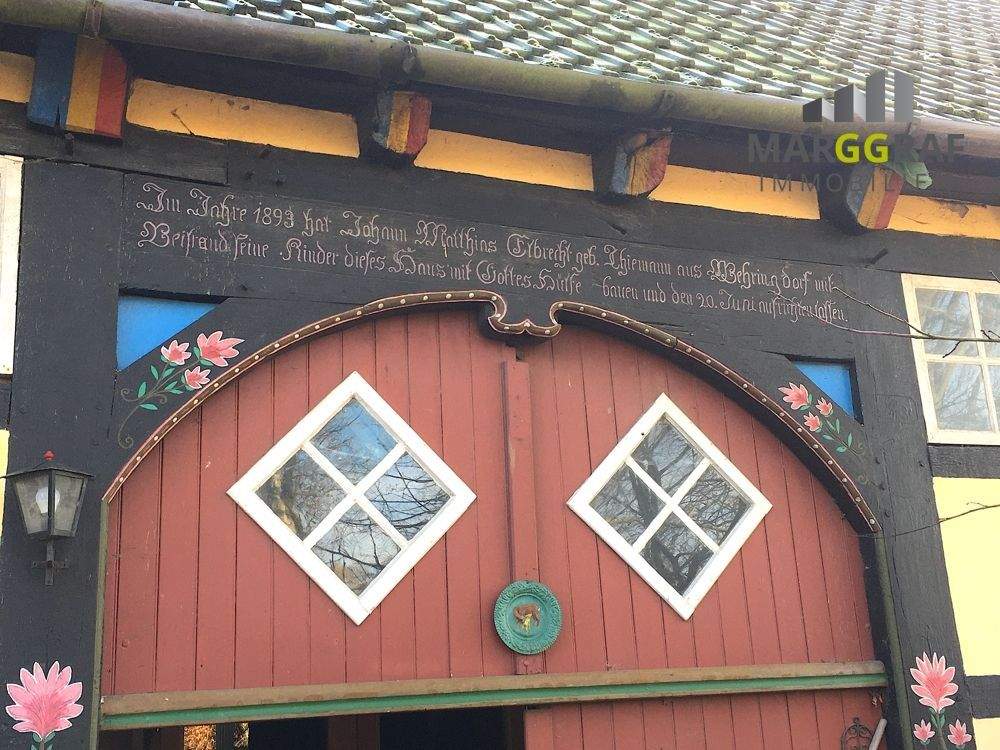 MARGGRAF
IMMOBILIE
Im Jahre 1893 hat Johann Matthias Elbrecht geb. Thiemann aus Wehringdorf mit
Beistand seine Kinder dieses Haus mit Gottes Hülfe bauen und den 20. Juni aufrichten lassen.